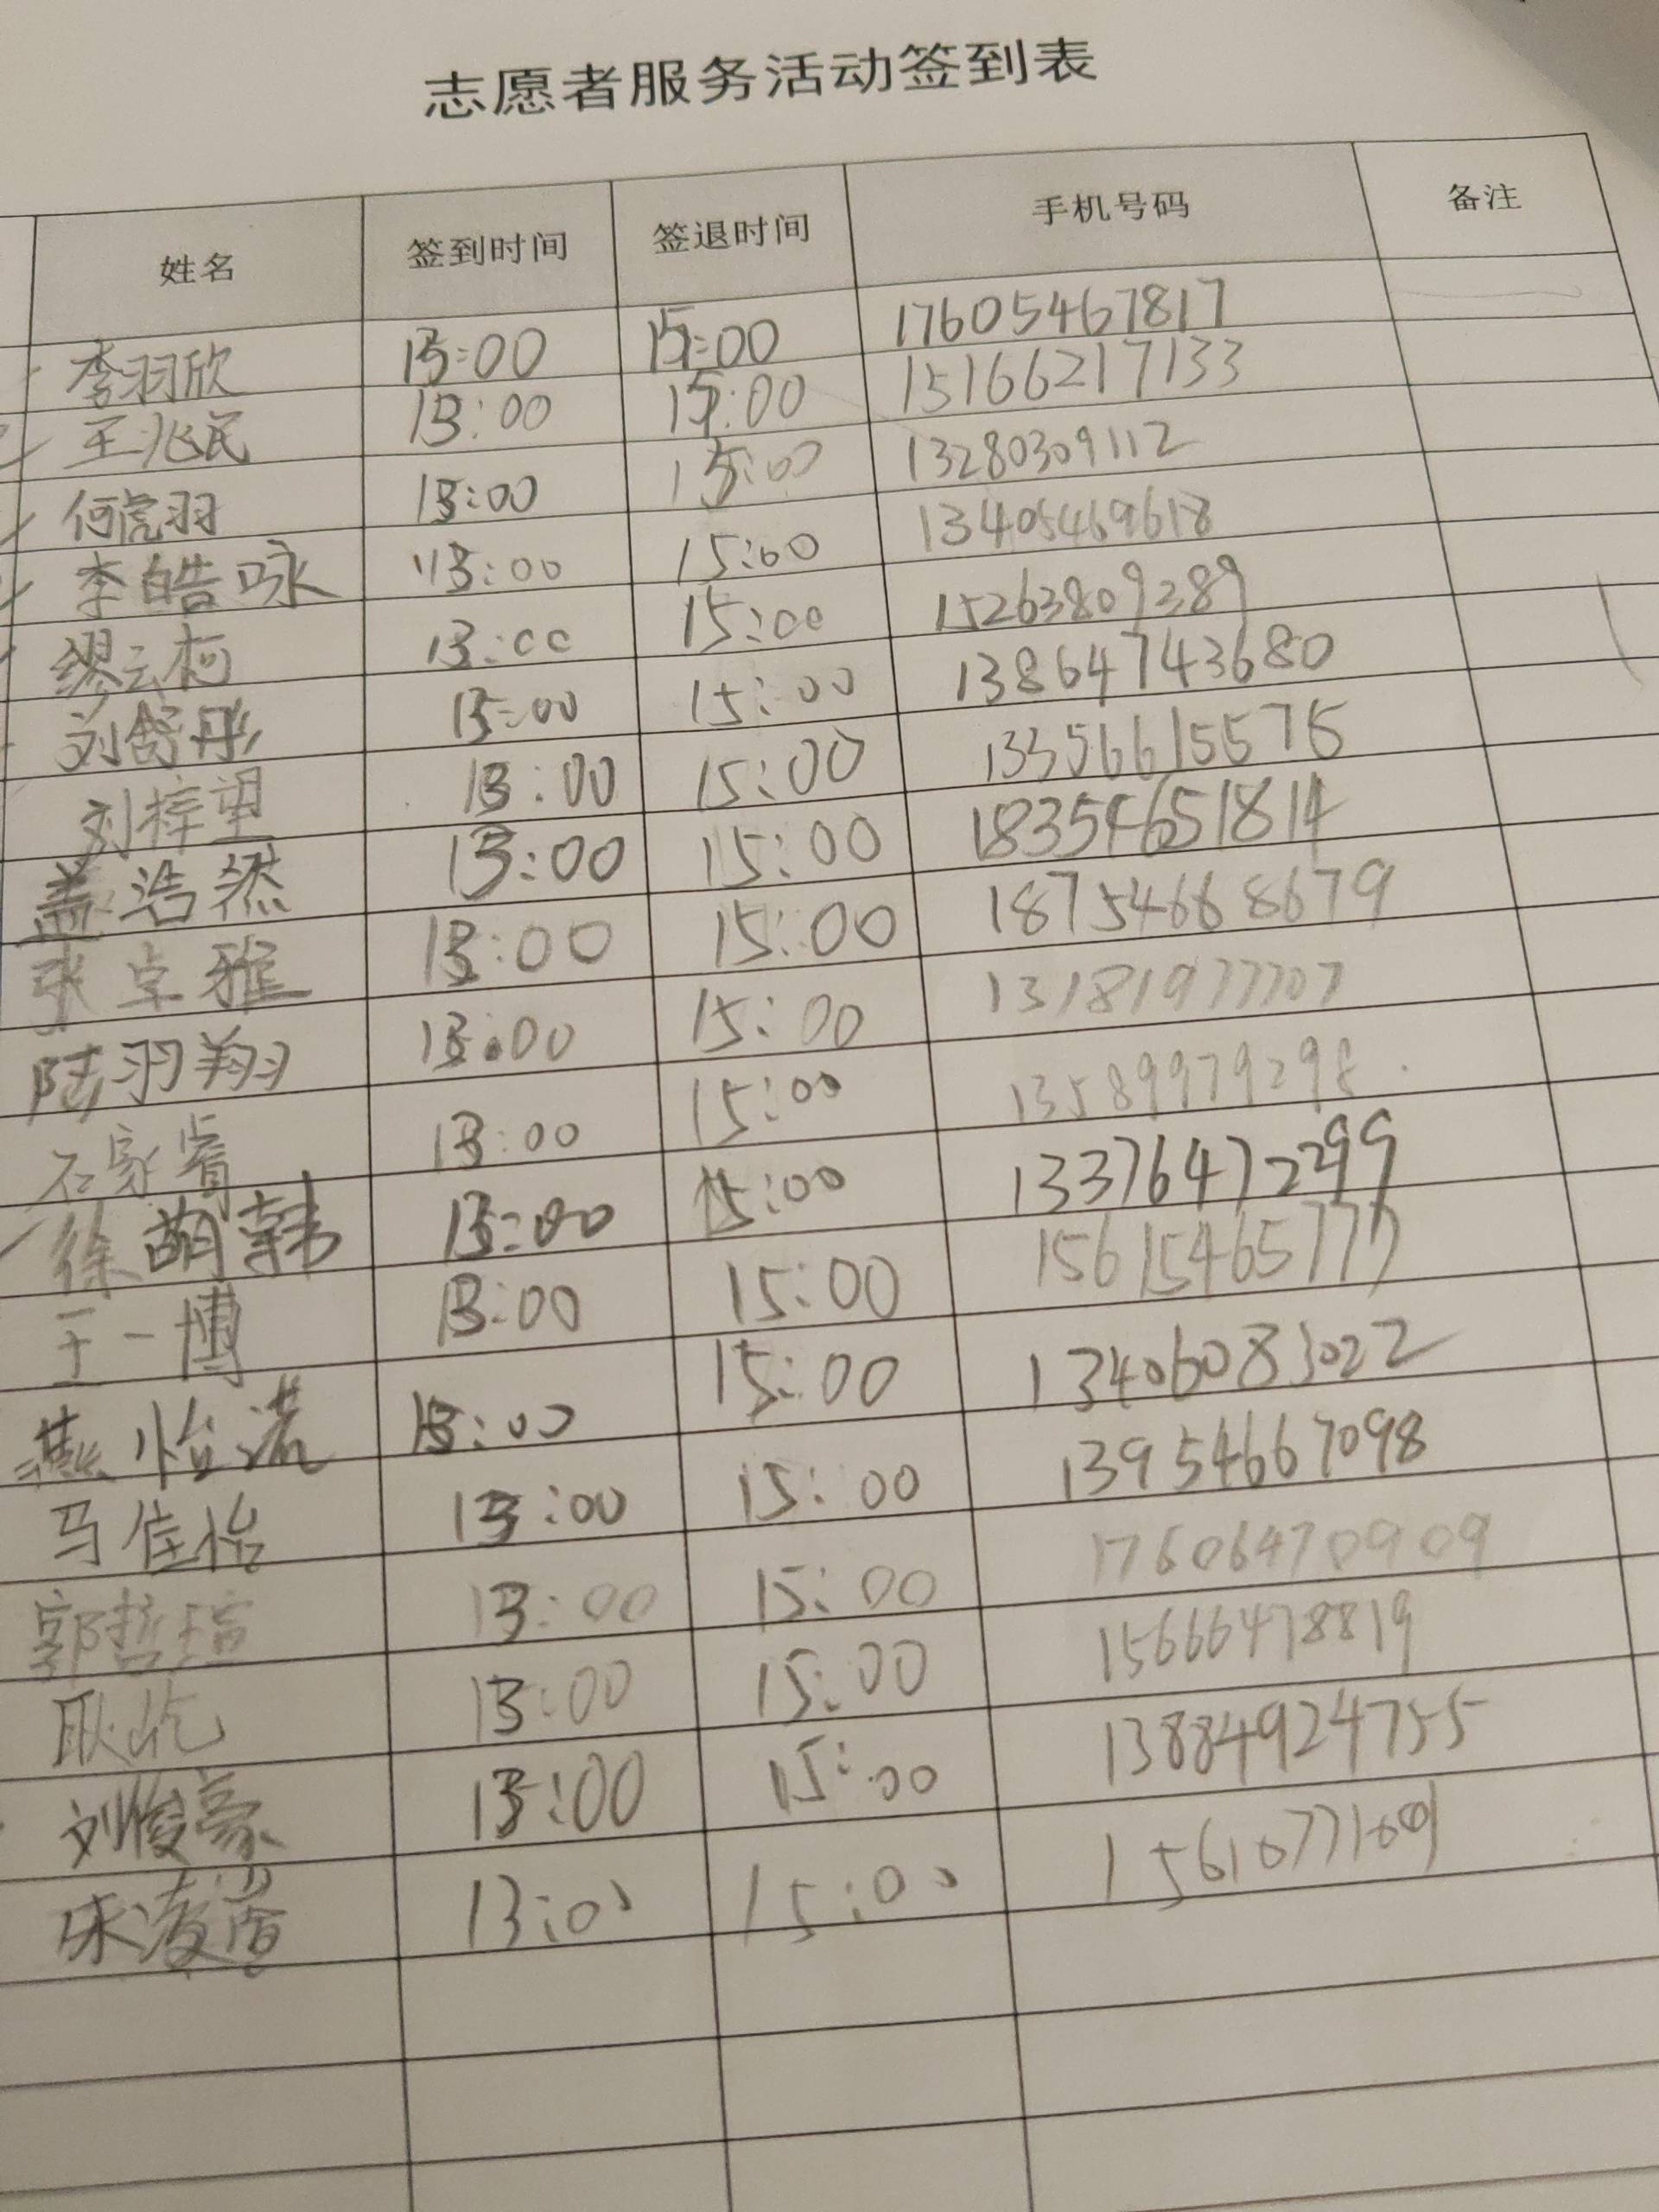 志愿者服务活动签到表
姓名 签到时间 签退时间 手机号码 备注
李羽欣 13:00 15:00 17605467817
王兆民 13:00 15:00 15166217133
何虎羽 13:00 15:00 13280309112
李皓咏 13:00 15:00 13405469618
缪云柯 13:00 15:00 15263809289
刘舒彤 13:00 15:00 13864743680
刘梓望 13:00 15:00 13356615575
盖浩然 13:00 15:00 18354651814
张卓雅 13:00 15:00 18754668679
陆羽翔 13:00 15:00 13181977707
石家睿 13:00 15:00
徐萌韩 13:00 15:00 13376472299
王一博 13:00 15:00 15615465777
燕怡诺 13:00 15:00 13406083022
马佳怡 13:00 15:00 13954667098
郭哲瑄 13:00 15:00 17606470909
耿屹 13:00 15:00 15666478819
刘俊豪 13:00 15:00 13884924755
13:00 15:00 15610777109